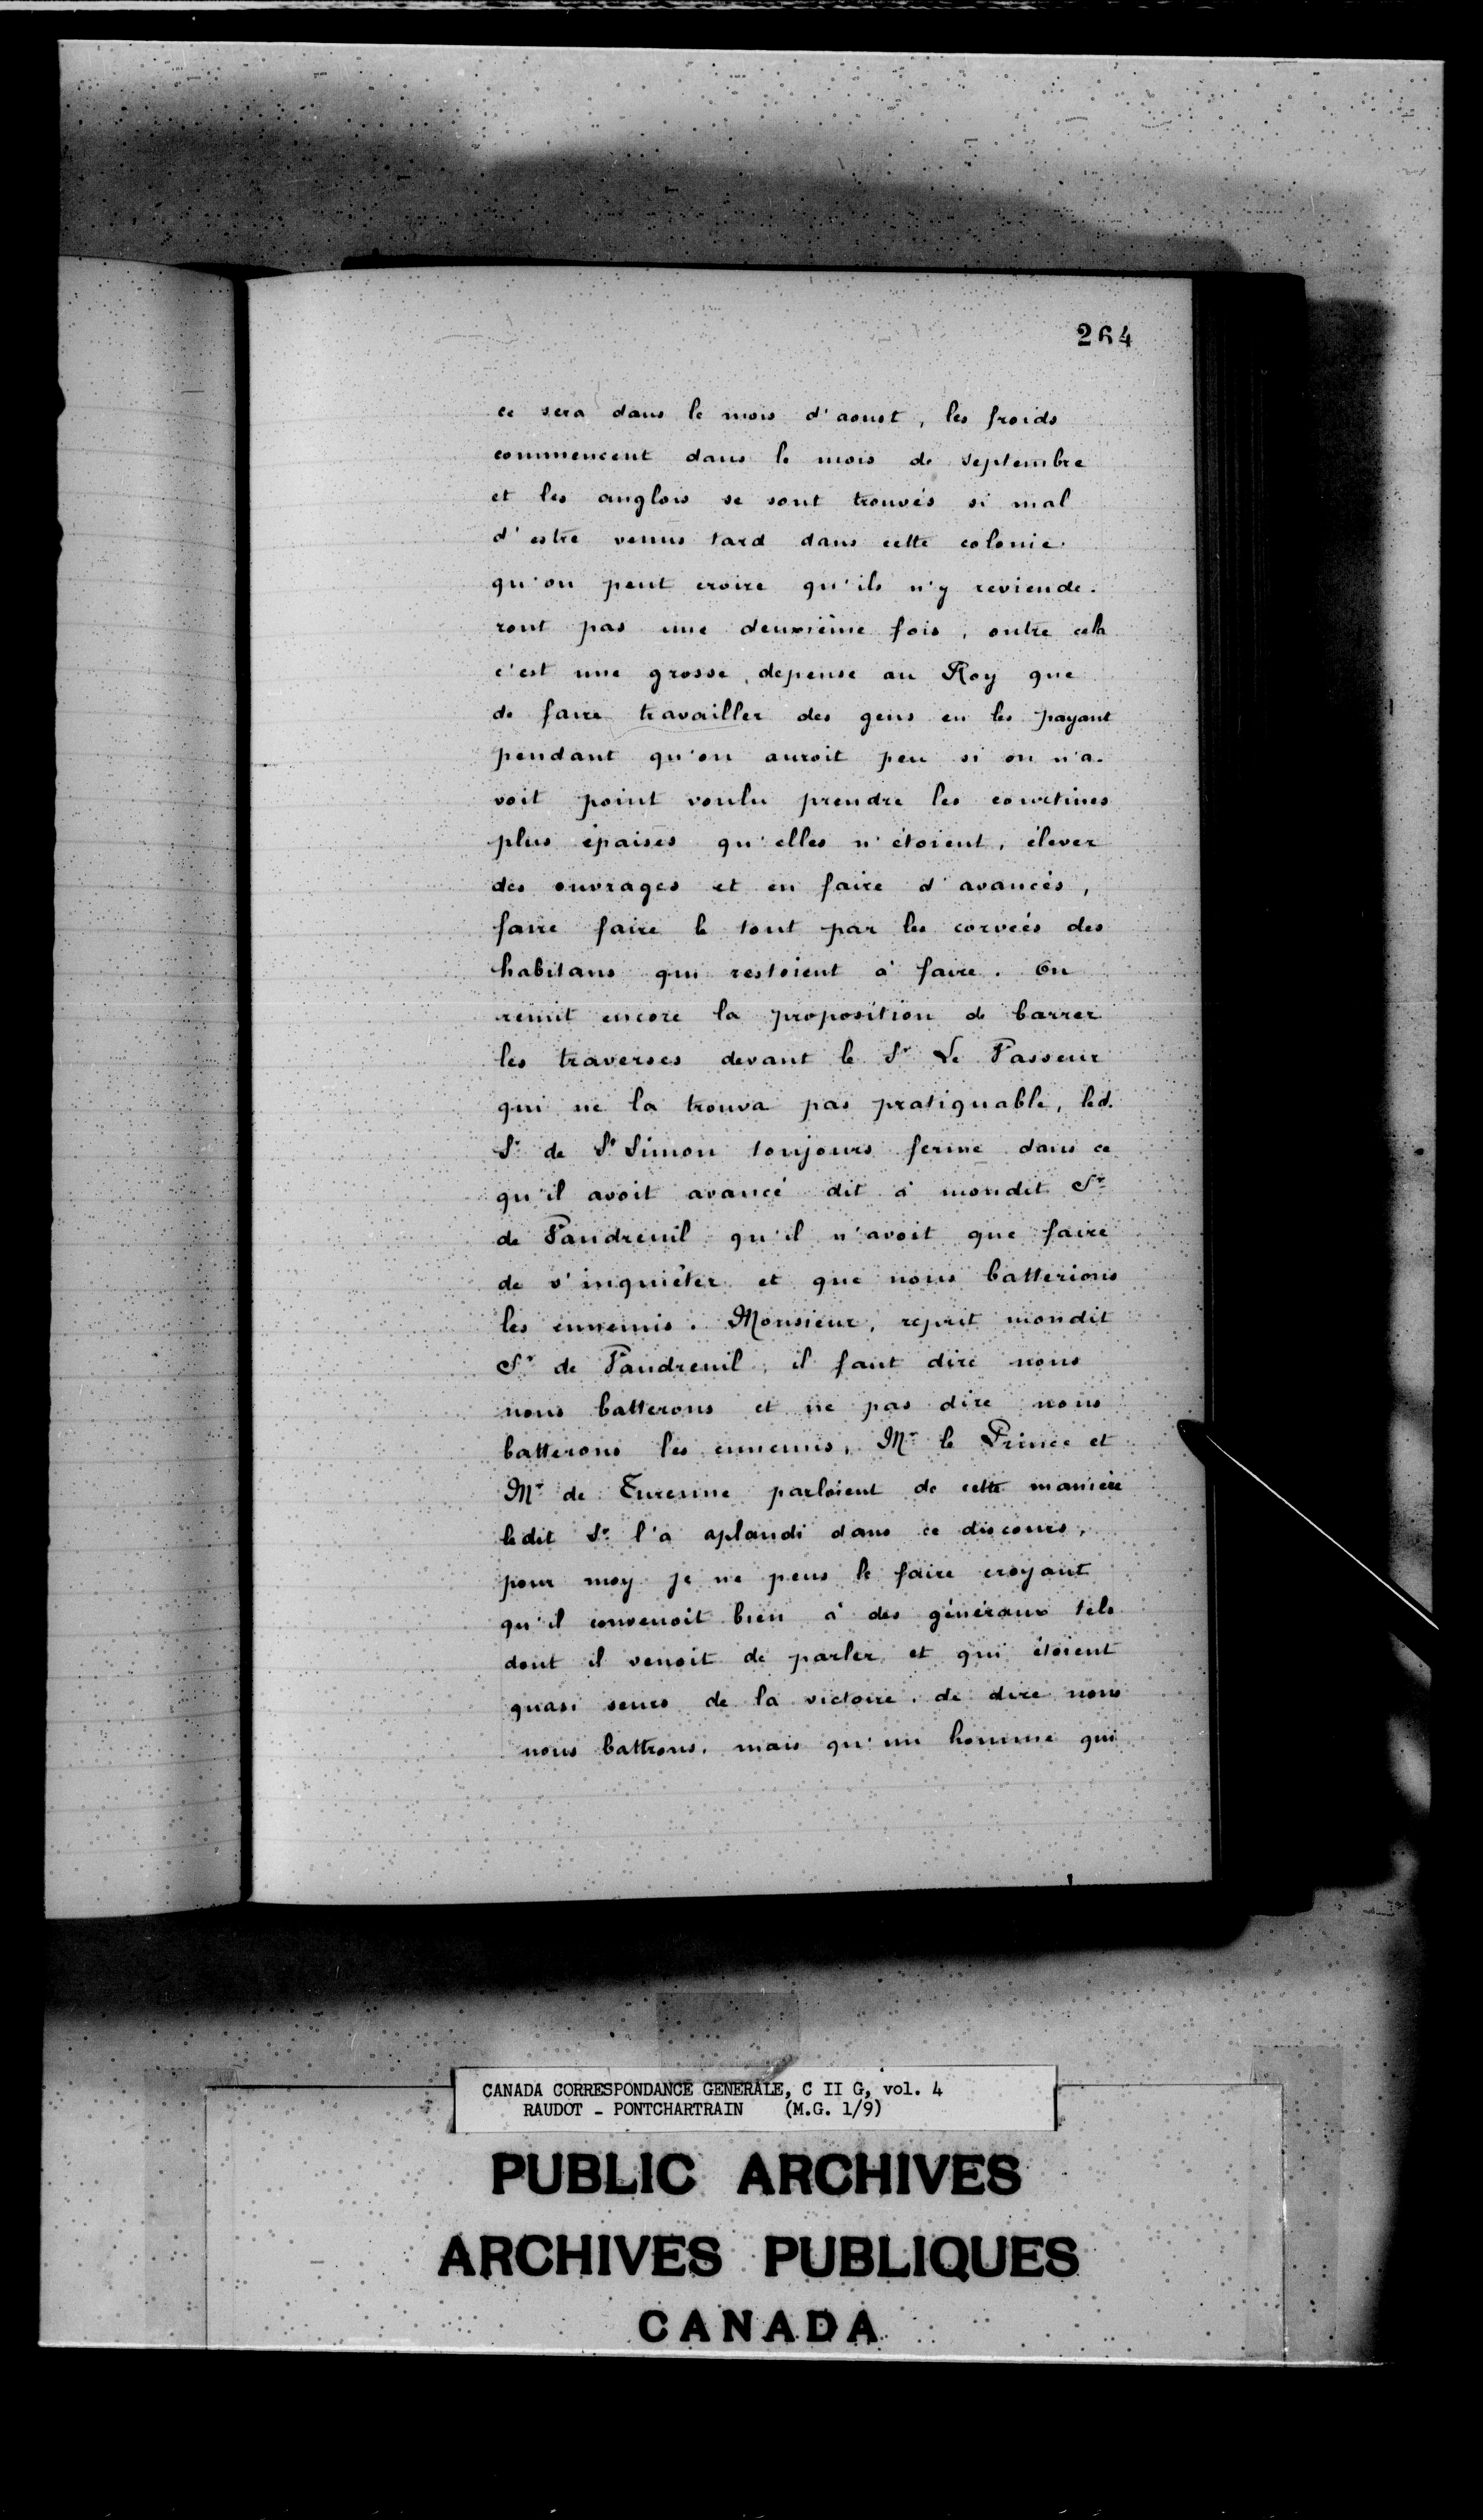 264
ce sera dans le mois d'aoust, les froids
commencent dans le mois de septembre
et les anglois se sont trouvés si mal
d'estre venus tard dans cette colonie
qu'on peut croire qu'ils n'y reviende-
ront pas une deuxième fois, outre cela
c'est une grosse depense au Roy que
de faire travailler des gens en les payant
pendant qu'on auroit peu si on n'a-
voit point voulu prendre les courtines
plus épaises qu'elles n'étoient, élever
des ouvrages et en faire d'avancés,
faire faire le tout par les corveés des
habitans qui restoient à faire. On
remit encore la proposition de barrer
les traverses devant le Sr Le Vasseur
qui ne la trouva pas pratiquable, led.
Sr de St Simon toujours ferme dans ce
qu'il avoit avancé dit à mondit Sr
de Vaudreuil qu'il n'avoit que faire
de s'inquiéter et que nous batterions
les ennemis. Monsieur, reprit mondit
Sr de Vaudreuil, il faut dire nous
nous batterons et ne pas dire nous
batterons les ennemis, Mr le Prince et
Mr de Turenne parloient de cette manière
ledit Sr l'a aplaudi dans ce discours,
pour moy je ne peus le faire croyant
qu'il convenoit bien à des généraux tels
dont il venoit de parler et qui étoient
quasi seurs de la victoire, de dire nous
nous battrons, mais qu'un homme qui
CANADA CORRESPONDANCE GENERALE, C II G, vol. 4
RAUDOT - PONTCHARTRAIN (M.G. 1/9)
PUBLIC ARCHIVES
ARCHIVES PUBLIQUES
CANADA